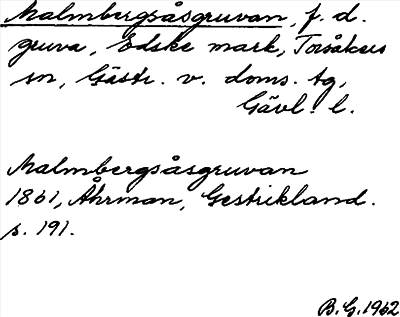 Malmbergsåsgruvan, f. d.
gruva, Edske mark, Torsåkers
sn, Gästr. v. doms. tg,
Gävl. l.
Malmbergsåsgruvan
1861, Åhrman, Gestrikland.
s. 191.
B.G. 1962